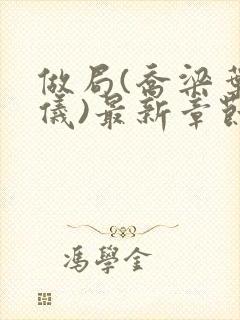 做局(喬梁葉
儀)最新章節
馮學金